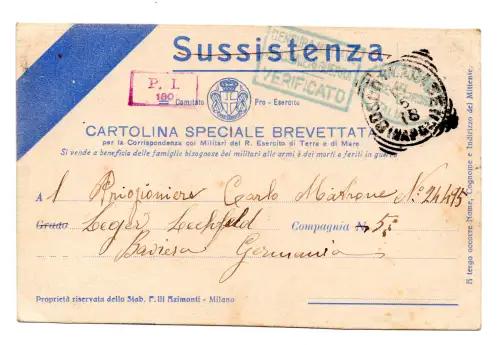 Sussistenza
P. I.
180
VERIFICATO
Comitato Pro - Esercito
CARTOLINA SPECIALE BREVETTATA
per la Corrispondenza coi Militari del R. Esercito di Terra e di Mare
Si vende a beneficio delle famiglie bisognose dei militari alle armi e dei morti o feriti in guerra
A l Prigioniere Carlo Matrone No. 24475
Grado Leger Lechfeld Compagnia N. 5a
Baviera Germania
Proprietà riservata dello Stab. F.lli Azimonti - Milano
A tergo occorre Nome, Cognome e Indirizzo del Mittente.